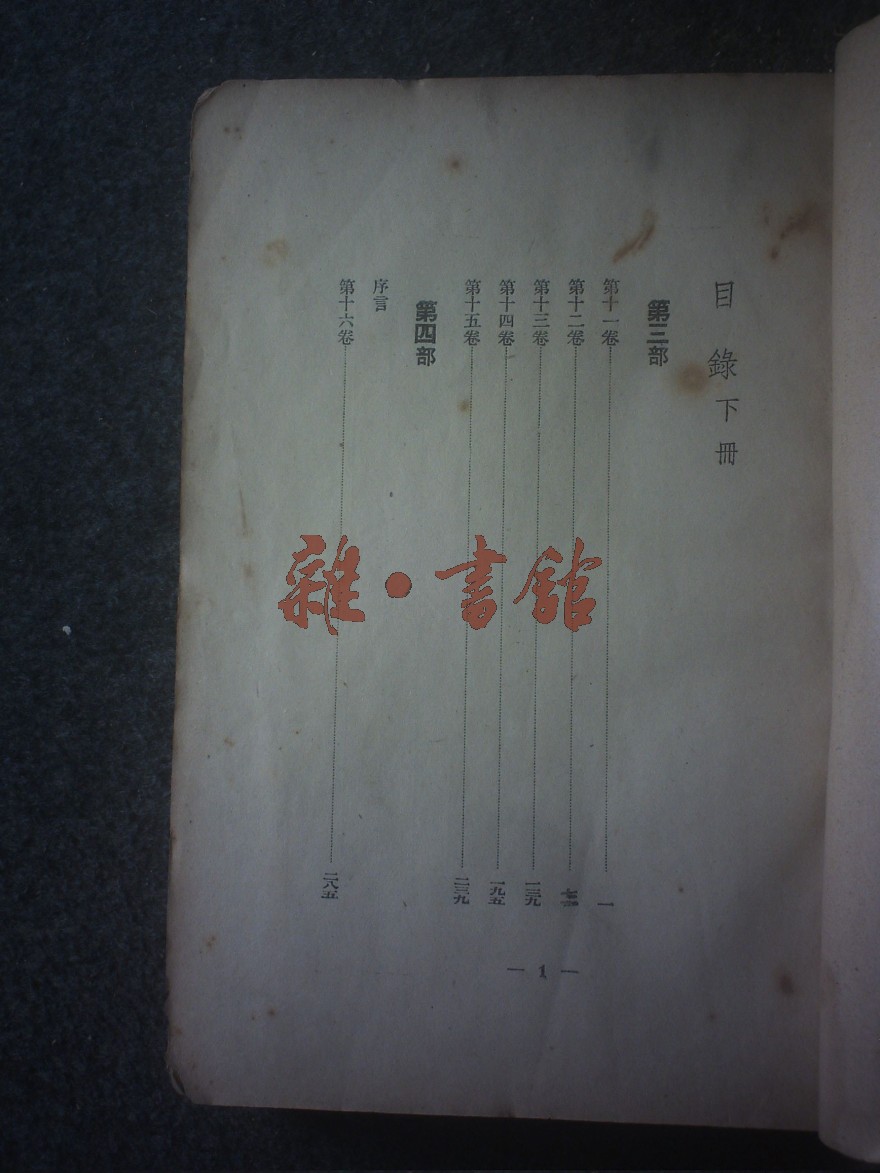 目錄下冊
第三部
第十一卷 一
第十二卷
第十三卷 一三九
第十四卷 一九五
第十五卷 二三九
第四部
序言
第十六卷 二八五
— 1 —
雜·書館